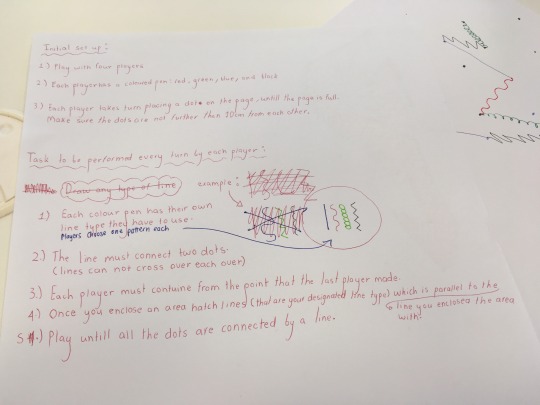 Initial set up:
1.) Play with four players
2.) Each player has a coloured pen: red, green, blue, and black
3.) Each player takes turn placing a dot • on the page, untill the page is full.
Make sure the dots are not further than 20cm from each other.
Task to be performed every turn by each player:
Draw any type of line
example:
1) Each colour pen has their own
line type they have to use.
Players choose one pattern each
2.) The line must connect two dots.
(lines can not cross over each over)
3.) Each player must contuine from the point that the last player made.
4) Once you enclose an area hatch lines (that are your designated line type) which is parallel to the
line you enclosed the area
with!
5.) Play untill all the dots are connected by a line.